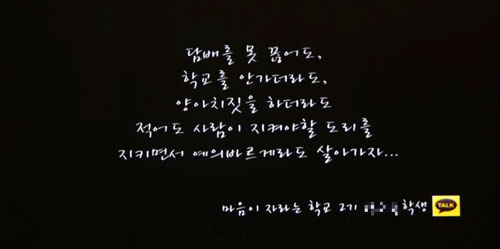 담배를 못 끊어도,
학교를 안가더라도,
양아치짓을 하더라도
적어도 사람이 지켜야할 도리를
지키면서 예의바르게라도 살아가자...
마음이 자라는 학교 2기 학생 TALK